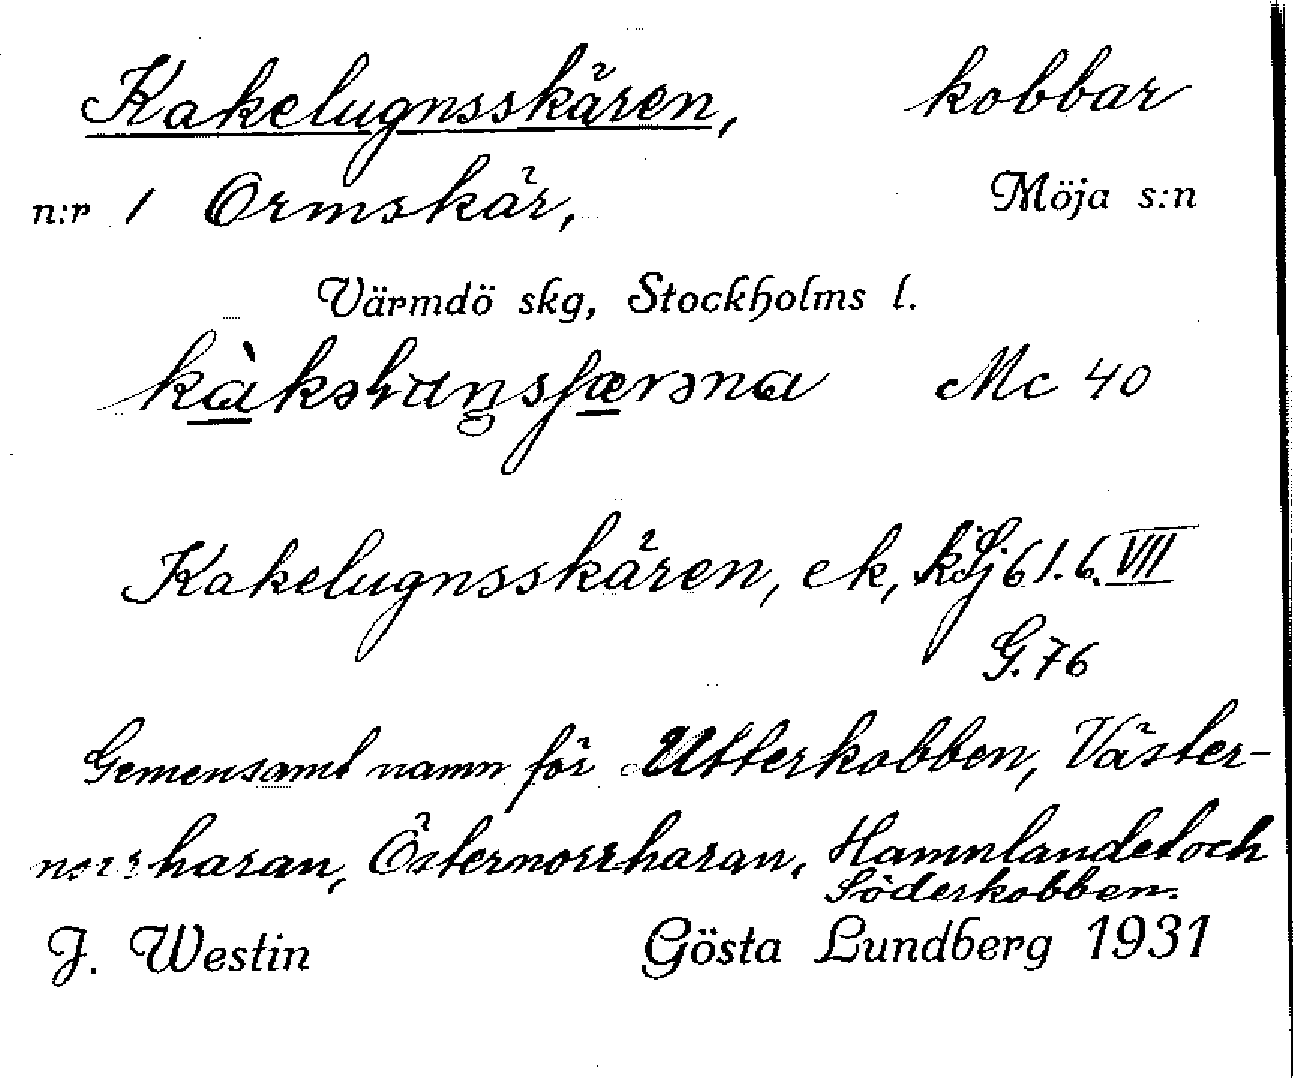 Kakelugnsskären, kobbar
n:r 1 Ormskär, Möja s:n
Värmdö skg, Stockholms l.
Mc 40
Kakelugnsskären, ek, kSj 61.6.VII
G.76
Gemensamt namn för Utterkobben, Väster-
norrharan, Östernorrharan, Hamnlandet och
Söderkobben.
J. Westin Gösta Lundberg 1931